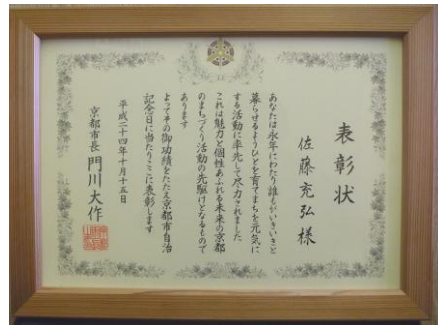 表彰状
佐藤充弘様
あなたは永年にわたり誰もがいきいきと
暮らせるようひとを育てまちを元気に
する活動に率先して尽力されました
これは魅力と個性あふれる未来の京都
のまちづくり活動の先駆けとなるもので
あります
よってその御功績をたたえ京都市自治
記念日に当たりここに表彰します
平成二十四年十月十五日
京都市長 門川大作